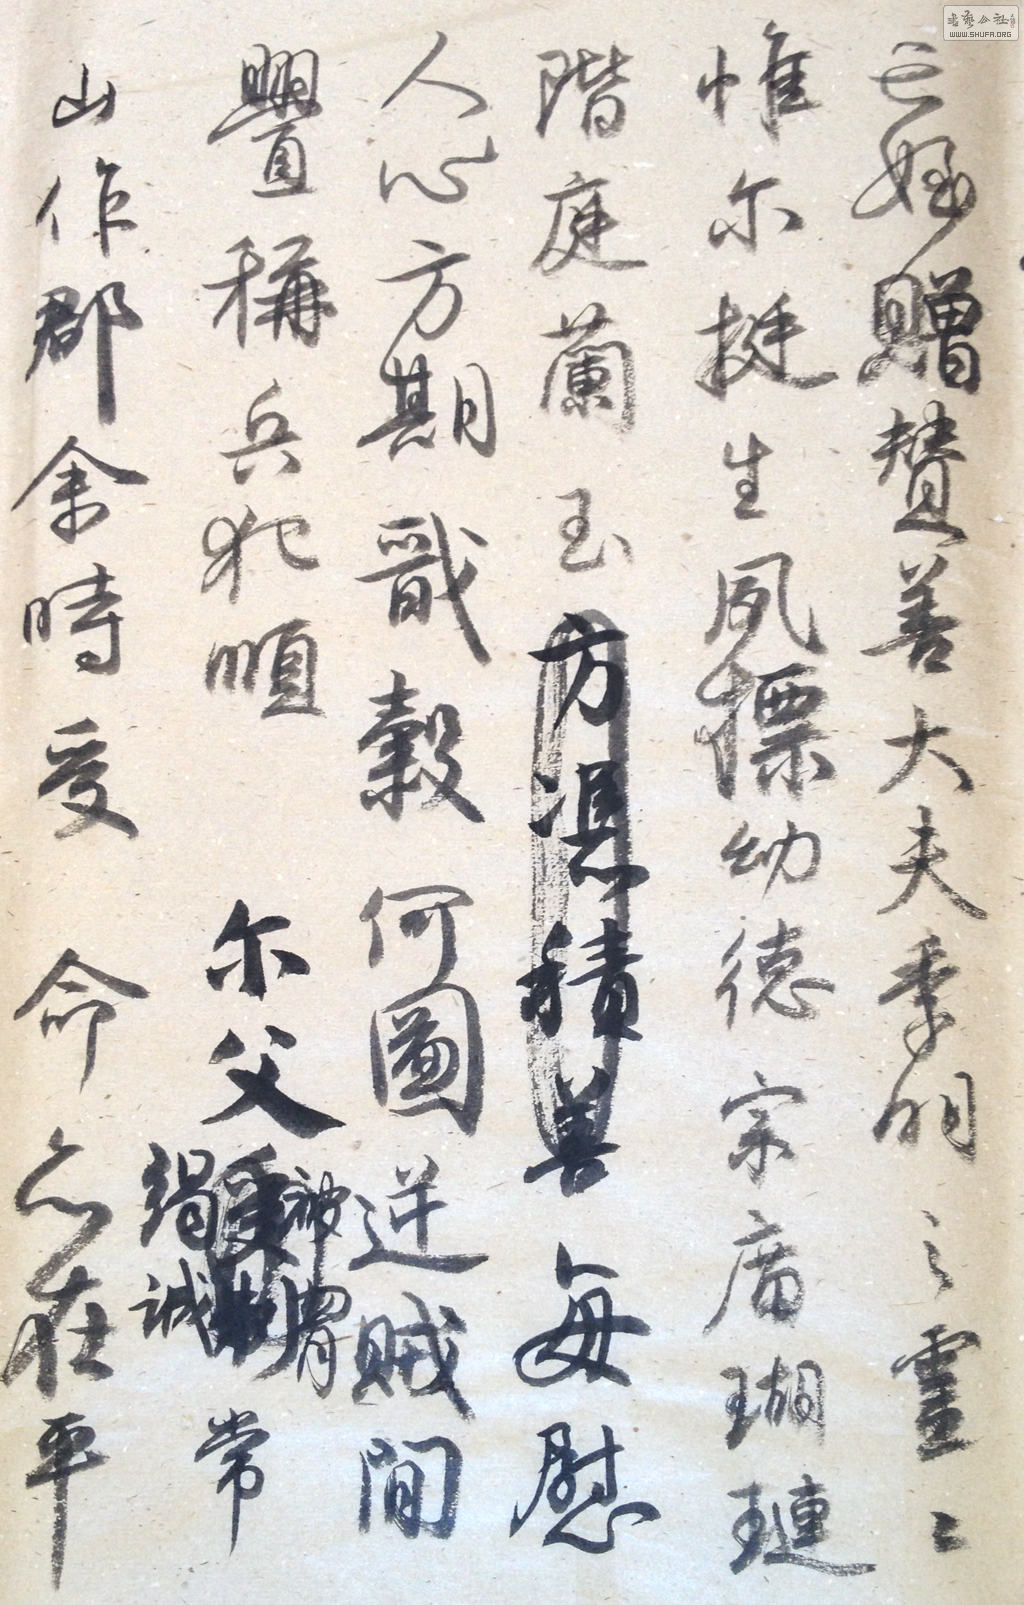 亡姪贈贊善大夫季明之靈曰
惟尔挺生夙摽幼德宗庿瑚璉
階庭蘭玉方凴積善每慰
人心方期戩穀何圖逆賊間
舋稱兵犯順尔父竭誠常
被脅
山作郡余時受命亦在平
書藝公社
WWW.SHUFA.ORG